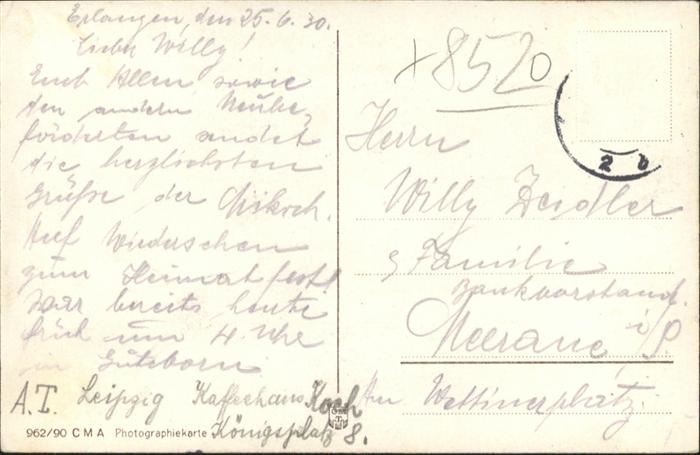 Erlangen, den 25.6.30.
Lieber Willy!
Euch Allen sowie
den andern Neube-
förderten sendet
die herzlichsten
Grüße der
Auf Wiedersehen
zum Heimatfest!
War bereits heute
früh um 4 Uhr
in Guteborn.
A.T. Leipzig Kaffeehaus Koch
Königsplatz 8.
962/90 C M A Photographiekarte
+8520
2 b
Herrn
Willy Zeidler
& Familie
Bankvorstand.
Meerane i/S
Am Wettinerplatz.